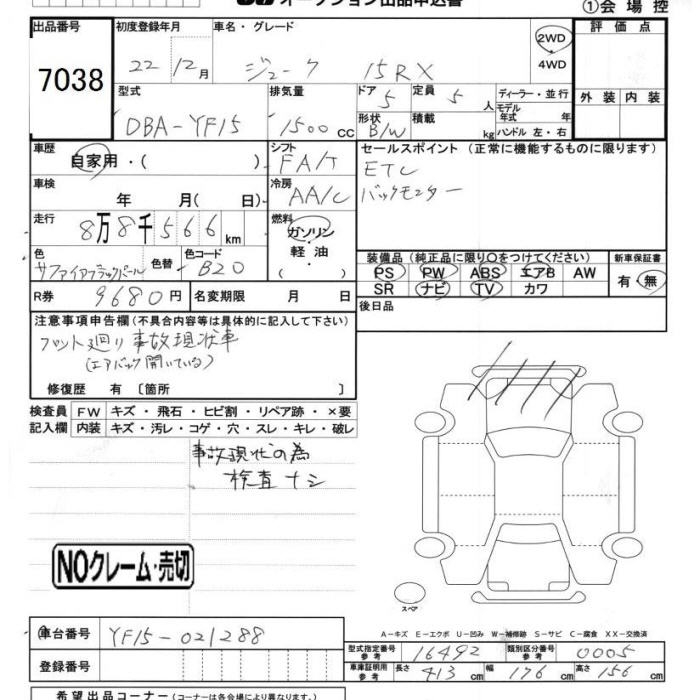 オークション出品申込書
①会場控
出品番号 初度登録年月 車名・グレード 評価点
7038 22 12月 ジューク 15RX 2WD 4WD
型式 排気量 ドア 5 定員 5人 ディーラー・並行 外装 内装
DBA-YF15 1500cc 形状 B/W 積載 kg モデル年式 年 ハンドル 左・右
車歴 シフト セールスポイント (正常に機能するものに限ります)
自家用・( ) FA/T ETC
車検 冷房 バックモニター
年 月( 日) AA/C
走行 燃料
8万8千566km ガソリン・軽油・( )
色 色替 色コード 装備品 (純正品に限り○をつけてください) 新車保証書
サファイアブラックパール B20 PS PW ABS エアB AW 有・無
R券 9680円 名変期限 月 日 SR ナビ TV カワ
注意事項申告欄 (不具合内容等は具体的に記入して下さい) 後日品
フロント廻り事故現状車
(エアバック開いている)
修復歴 有 〔箇所 〕
検査員 FW キズ・飛石・ヒビ割・リペア跡・×要
記入欄 内装 キズ・汚レ・コゲ・穴・スレ・キレ・破レ
事故現状の為
検査ナシ
NOクレーム・売切
スペア
A-キズ E-エクボ U-凹み W-補修跡 S-サビ C-腐食 XX-交換済
車台番号 YF15-021288
型式指定番号 参考 16492 類別区分番号 参考 0005
登録番号 車庫証明用 参考 長さ 413cm 幅 176cm 高さ 156cm
希望出品コーナー (コーナーは各会場により異なります)